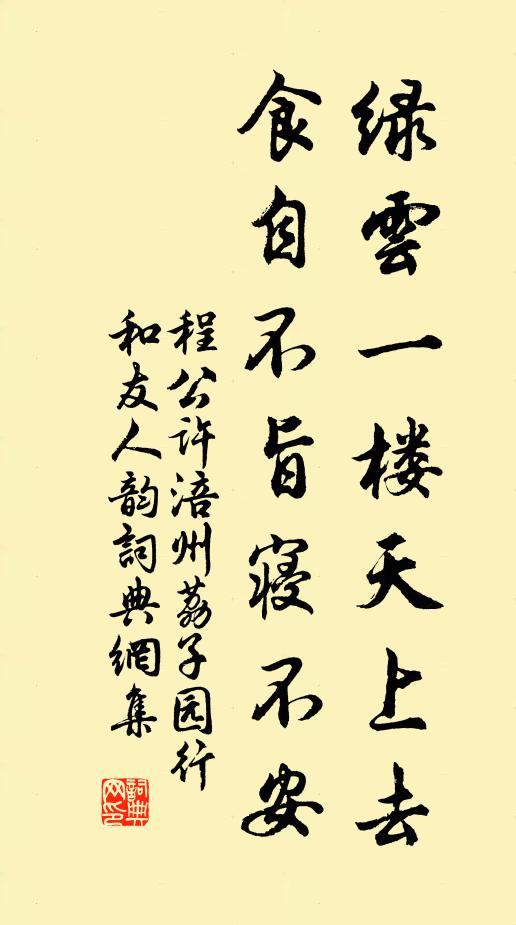 绿雲一楼天上去
食自不旨寝不安
程公许涪州荔子园行
和友人韵詞典網集
詞典网印